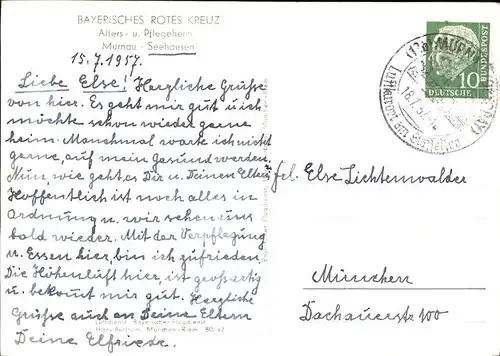 BAYERISCHES ROTES KREUZ
Alters- u. Pflegeheim
Murnau - Seehausen
15.7.1957.
Liebe Else! Herzliche Grüße
von hier. Es geht mir gut u. ich
möchte schon wieder gerne
heim. Manchmal warte ich nicht
gerne, auf mein Gesund werden.
Nun, wie geht es Dir u. Deinen Eltern
Hoffentlich ist noch alles in
Ordnung u. wir sehen uns
bald wieder. Mit der Verpflegung
u. Essen hier, bin ich zufrieden.
Die Höhenluft hier, ist großartig
u. bekommt mir gut. Herzliche
Grüße auch an Deine Eltern
Deine Elfriede.
Hans Bertram, München-Riem
DEUTSCHE BUNDESPOST
10
(13b) MURN
18.7.57
Luftkurort am Staffelsee
frl. Else Lichtenwalder
München
Dachauerstr 100